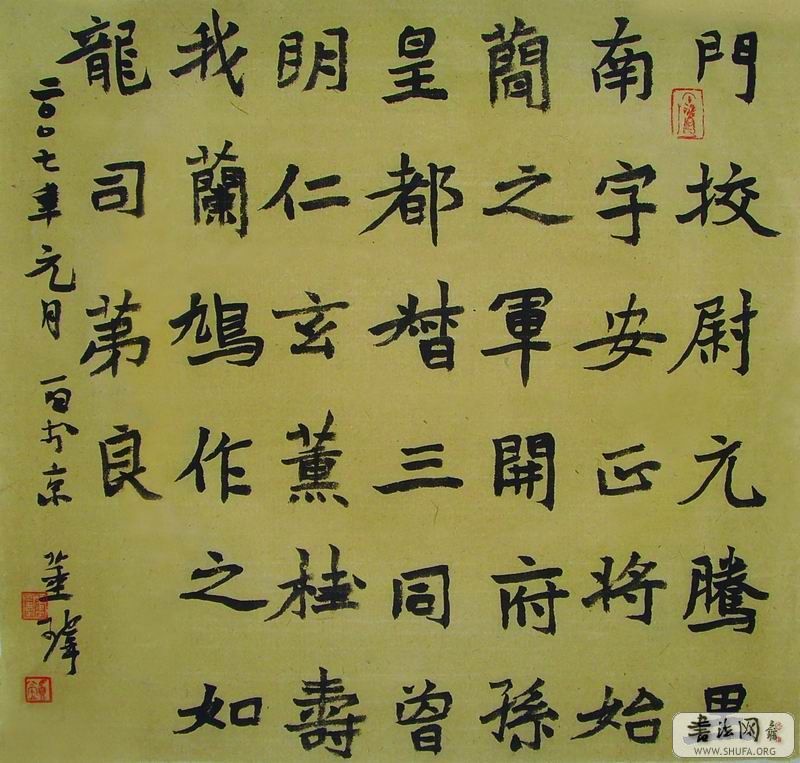 門挍尉元騰
南字安正将始
蕳之軍開府孫
皇都督三同曾
明仁玄薰桂壽
我蘭鳩作之如
龍司苐良
二〇〇七年元月
京
書法网
WWW.SHUFA.ORG